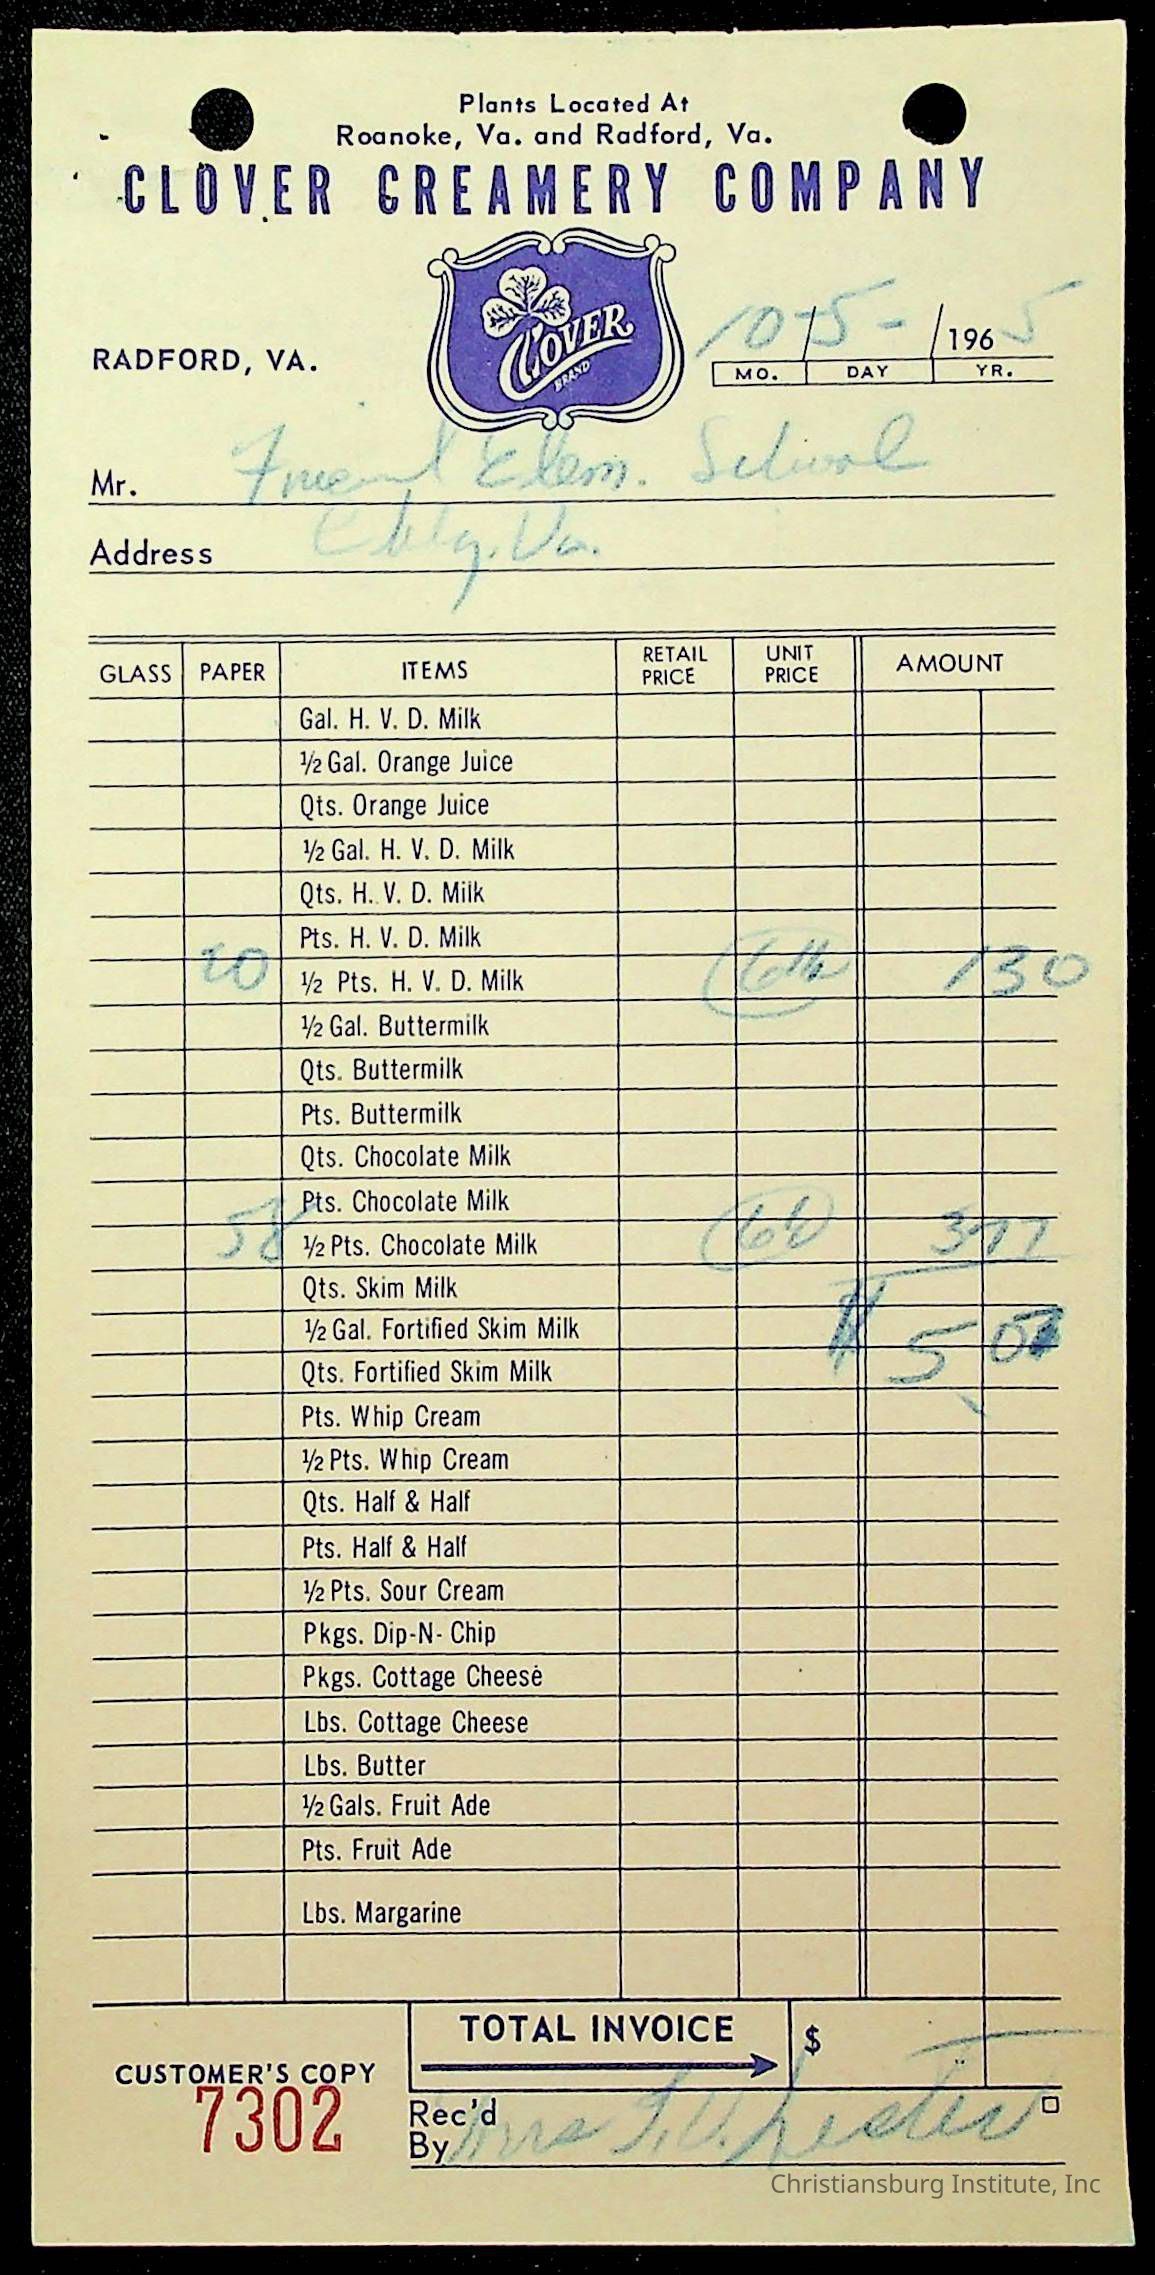 Plants Located At
Roanoke, Va. and Radford, Va.
CLOVER CREAMERY COMPANY
CLOVER
BRAND
RADFORD, VA.
10-/5-/1965
MO. DAY YR.
Mr. Friend Elem. School
Address Cbtg. Va.
GLASS PAPER ITEMS RETAIL PRICE UNIT PRICE AMOUNT
Gal. H. V. D. Milk
½ Gal. Orange Juice
Qts. Orange Juice
½ Gal. H. V. D. Milk
Qts. H. V. D. Milk
Pts. H. V. D. Milk
20 ½ Pts. H. V. D. Milk 6½ 1 30
½ Gal. Buttermilk
Qts. Buttermilk
Pts. Buttermilk
Qts. Chocolate Milk
Pts. Chocolate Milk
58 ½ Pts. Chocolate Milk 3 77
Qts. Skim Milk
½ Gal. Fortified Skim Milk $ 5 07
Qts. Fortified Skim Milk
Pts. Whip Cream
½ Pts. Whip Cream
Qts. Half & Half
Pts. Half & Half
½ Pts. Sour Cream
Pkgs. Dip-N-Chip
Pkgs. Cottage Cheese
Lbs. Cottage Cheese
Lbs. Butter
½ Gals. Fruit Ade
Pts. Fruit Ade
Lbs. Margarine
TOTAL INVOICE $
CUSTOMER'S COPY
7302
Rec'd By Mrs T. V. Lester
Christiansburg Institute, Inc